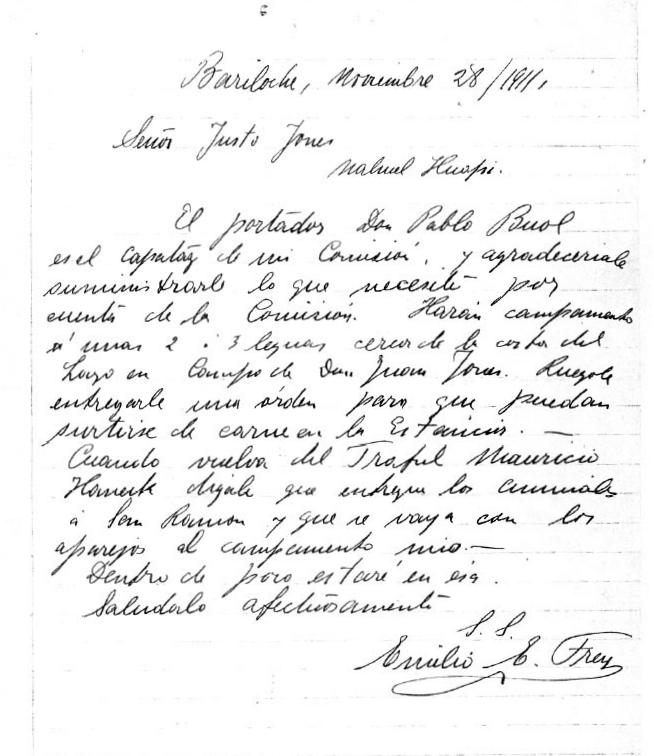 Bariloche, Noviembre 28/1911.
Señor Justo Jones
Nahuel Huapi.
El portador Don Pablo Buol
es el capatáz de mi Comisión, y agradeceriale
suministrarle lo que necesite por
cuenta de la Comisión. Harán campamento
á unas 2 ó 3 leguas cerca de la costa del
Lago en Campo de Don Juan Jones. Ruegole
entregarle una órden para que puedan
surtirse de carne en la Estancia. —
Cuando vuelva del Traful Mauricio
digale que entregue los animales
á San Ramon y que se vaya con los
aparejos al campamento mio. —
Dentro de poco estaré en esa.
Saludalo afectuosamente
S. S.
Emilio E. Frey